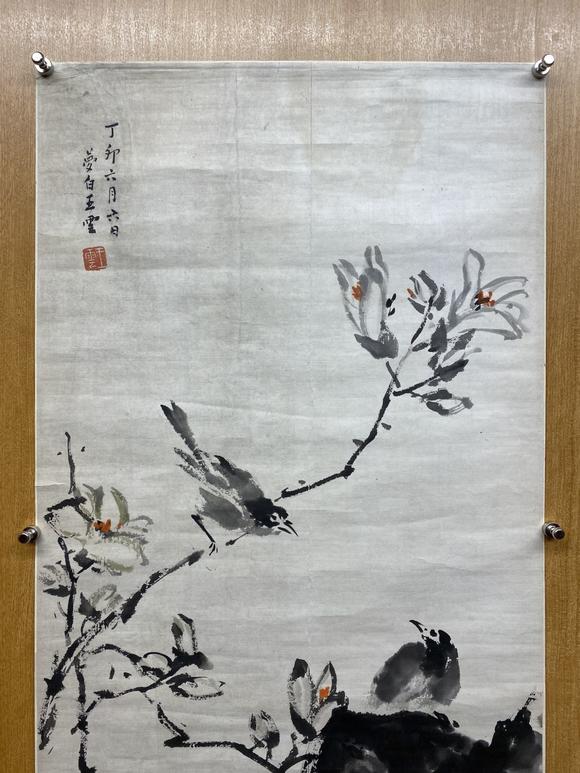 丁卯六月六日
夢白王雲
王雲